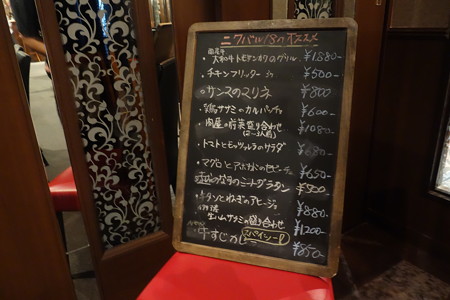 ニクバル18のオススメ
大和牛トモサンカクのグリル ¥1,880-
・チキンフリッター ¥500-
・サンマのマリネ ¥800-
・鶏ササミのカルパッチョ ¥600-
・肉屋の前菜盛り合わせ ¥1080-
(2〜3人前)
・トマトとモッツァレラのサラダ ¥680-
・マグロとアボカドのセビーチェ ¥650-
なすのミートグラタン
・牛タンとねぎのアヒージョ ¥880-
生ハムサラミの盛り合わせ ¥1200-
牛すじカレー スパイシー!! ¥850-